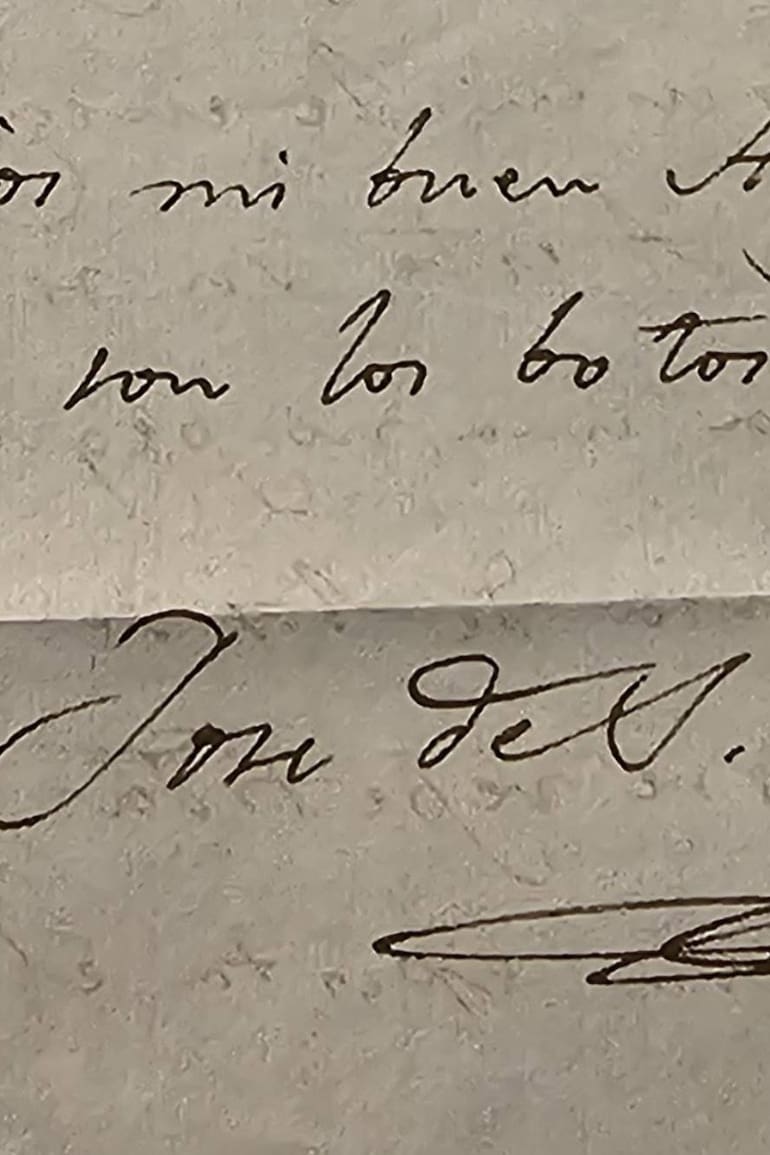 mi buen A
son los botos
Jose de S.